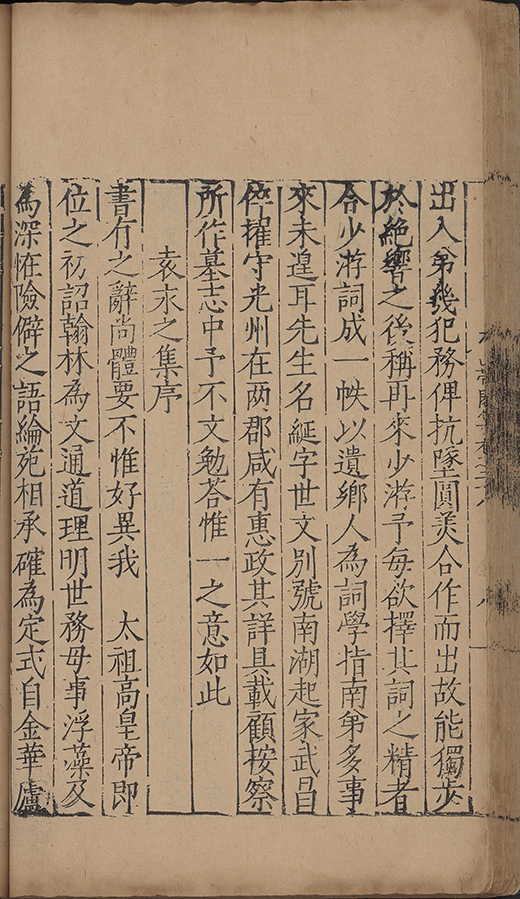 出入第幾犯務俾抗墜圓美合作而出故能獨步
於絶響之後稱再來少游予每欲擇其詞之精者
合少游詞成一帙以遺鄉人為詞學指南第多事
來未遑耳先生名綖字世文別號南湖起家武昌
倅擢守光州在两郡咸有惠政其詳具載顧按察
所作墓志中予不文勉荅惟一之意如此
袁永之集序
書有之辭尚體要不惟好異我　太祖高皇帝即
位之初詔翰林為文通道理明世務毋事浮藻及
為深恠險僻之語綸苑相承確為定式自金華盧